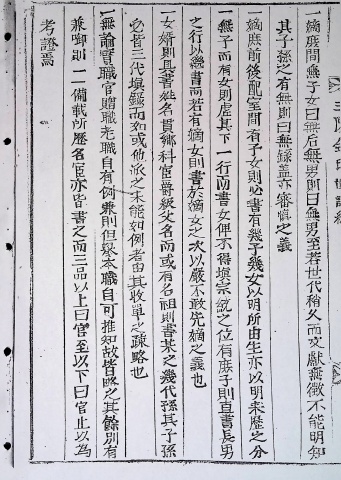 一嫡庶間無子女曰無后無男則曰無男至若世代稍久而文獻無徵不能明知
其子孫之有無則曰無錄盖亦審愼之義
一嫡庶前後配室間有子女則必書有幾子幾女以明所由生亦以明來歷之分
一無子而有女則虛其下一行而書女俾不得塡宗統之位有庶子則直書長男
之行以幾書而若有嫡女則書於嫡女之次以嚴不敢先嫡之義也
一女婿則具書姓名貫鄕科官爵級父名而或有名祖則書某之幾代孫其子孫
必皆三代塡錄而如或他派之未能如例者由其收單之疎略也
一無論實職官贈職老職自有例兼則但擧本職自可推知故皆略之其餘別有
兼啣則一一備載所歷名宦亦皆書之而三品以上曰官至以下曰官止以爲
考證焉